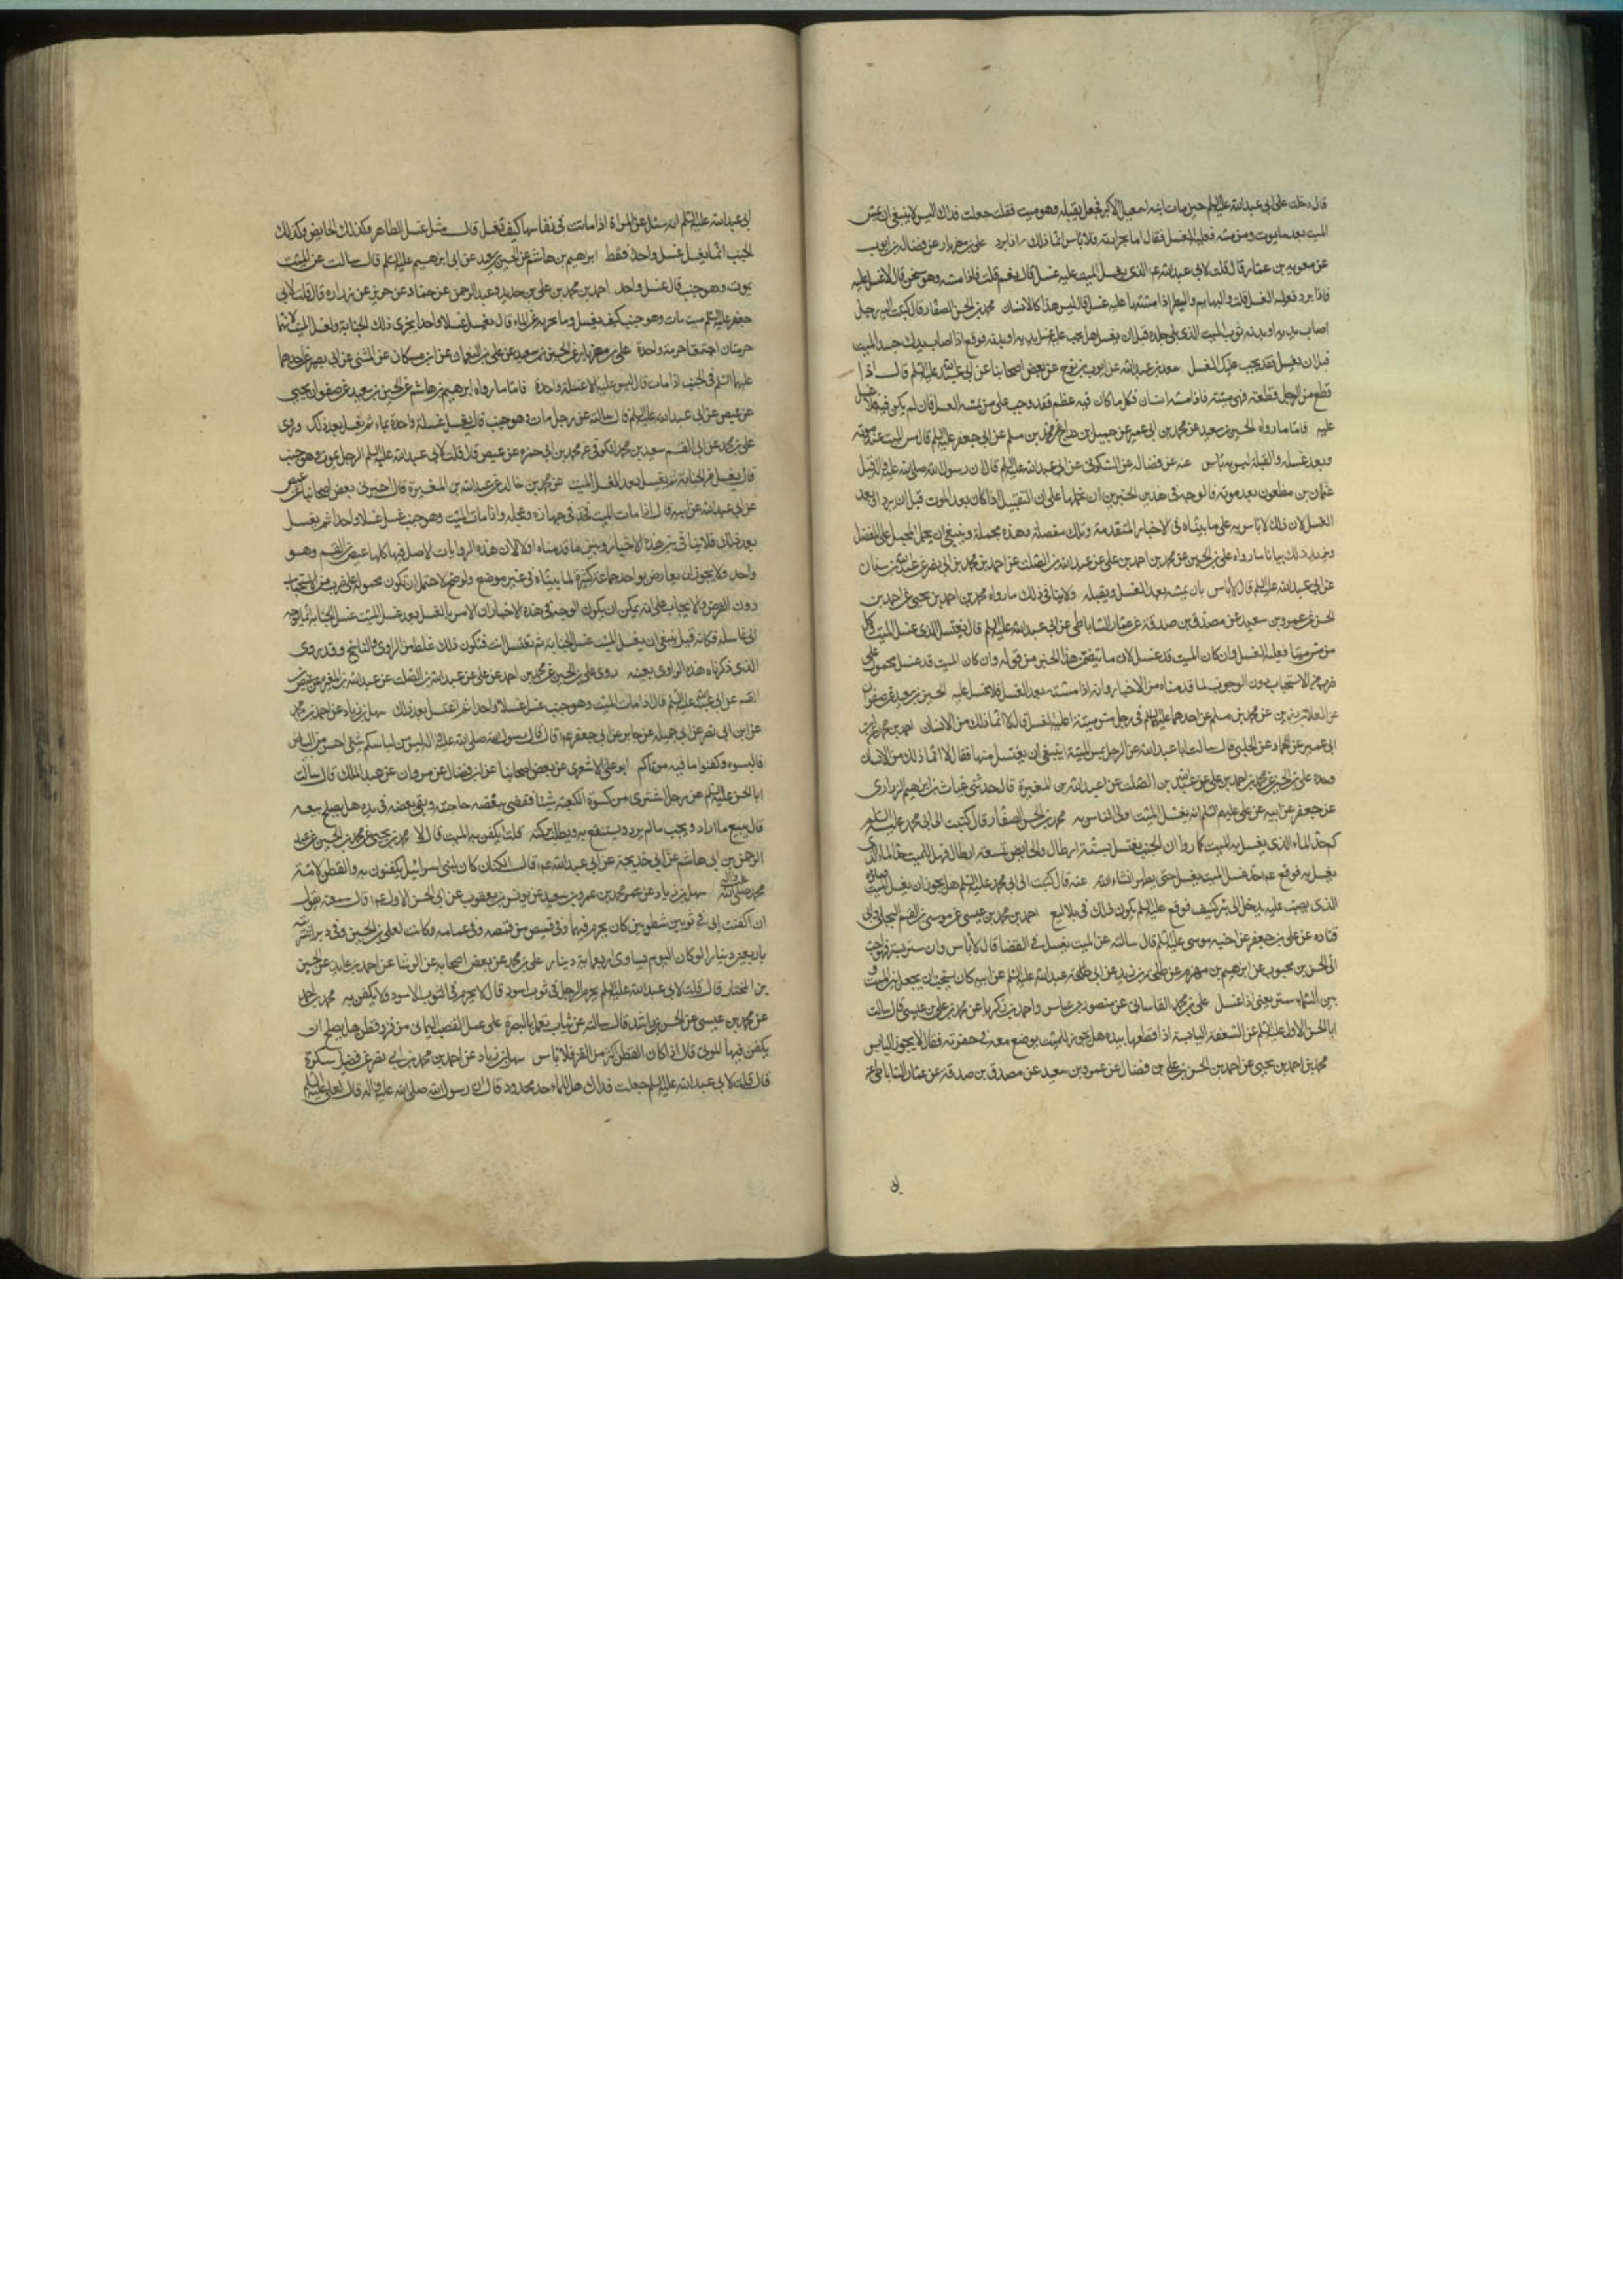 قال دخلت على ابى عبدالله عليه السلم حين مات ابنه اسمعيل الاكبر فجعل يقبله وهو ميت فقلت جعلت فداك اليس لا ينبغى ان يمس
الميت بعد ما يموت ومن مسه فعليه الغسل فقال اما بحرارته فلا باس انما ذلك اذا برد على بن مهزيار عن فضالة بن ايوب
عن معوية بن عمار قال قلت لابى عبدالله ع الذى يغسل الميت عليه غسل قال نعم قلت فاذا مسه وهو سخن قال لا غسل عليه
فاذا برد فعليه الغسل قلت والبهايم والطير اذا مسها عليه غسل قال ليس هذا كالانسان محمد بن الحسن الصفار قال كتبت اليه رجل
اصاب يديه او بدنه ثوب الميت الذى يلى جلده قبل ان يغسل هل يجب عليه غسل يديه او بدنه فوقع اذا اصاب يدك جسد الميت
قبل ان يغسل فقد يجب عليك الغسل سعد بن عبدالله عن ايوب بن نوح عن بعض اصحابنا عن ابى عبدالله عليه السلم قال اذا
قطع من الرجل قطعة فهى ميتة فاذا مسه انسان فكل ما كان فيه عظم فقد وجب على من يمسه الغسل فان لم يكن فيه فلا غسل
عليه فاما ما رواه الحسين بن سعيد عن محمد بن ابى عمير عن جميل بن دراج عن محمد بن مسلم عن ابى جعفر عليه السلم قال مس الميت عند موته
وبعد غسله والقبلة ليس به باس عنه عن فضالة عن السكونى عن ابى عبدالله عليه السلم قال ان رسول الله صلى الله عليه واله قبل
عثمان بن مظعون بعد موته فالوجه فى هذين الخبرين ان نحملها على ان التقبيل اذا كان بعد الموت قبل ان يبرد او بعد
الغسل لان ذلك لا باس به على ما بيناه فى الاخبار المتقدمة وتلك مفصلة وهذه مجملة وينبغى ان يحمل المجمل على المفصل
ويزيد ذلك بيانا ما رواه على بن الحسين عن محمد بن احمد بن على عن عبدالله بن الصلت عن احمد بن محمد بن ابى نصر عن عبدالله بن سنان
عن ابى عبدالله عليه السلم قال لا باس بان يمسه بعد الغسل ويقبله ولا ينافى ذلك ما رواه محمد بن احمد بن يحيى عن احمد بن
الحسن عن عمرو بن سعيد عن مصدق بن صدقة عن عمار الساباطى عن ابى عبدالله عليه السلم قال يغتسل الذى غسل الميت وكل
من مس ميتا فعليه الغسل وان كان الميت قد غسل لان ما يتضمن هذا الخبر من قوله وان كان الميت قد غسل محمول على
ضرب من الاستحباب دون الوجوب لما قدمناه من الاخبار وانه اذا مسه بعد الغسل فلا غسل عليه الحسين بن سعيد عن صفوان
عن العلا بن رزين عن محمد بن مسلم عن احدهما عليهما السلم فى رجل مس ميتة اعليه الغسل قال لا انما ذلك من الانسان احمد بن محمد عن ابن
ابى عمير عن حماد عن الحلبى قال سالت ابا عبدالله عن الرجل يمس الميتة اينبغى ان يغتسل منها فقال لا انما ذلك من الانسان
وحده على بن الحسين عن محمد بن احمد بن على عن عبدالله بن الصلت عن عبدالله بن المغيرة قال حدثنى غياث بن ابراهيم الرزامى
عن جعفر عن ابيه عن على عليهم السلم انه يغسل الميت اولى الناس به محمد بن الحسن الصفار قال كتبت الى ابى محمد عليه السلم
كم حد الماء الذى يغسل به الميت كما رووا ان الجنب يغتسل بستة ارطال والحايض بتسعة ارطال فهل للميت حد الماء الذى
يغسل به فوقع ع حد غسل الميت يغسل حتى يطهر انشاء الله عنه قال كتبت الى ابى محمد عليه السلم هل يجوز ان يغسل الميت وماؤه
الذى يصب عليه يدخل الى بئر كنيف فوقع عليه السلم يكون ذلك فى بلاليع احمد بن محمد بن عيسى عن موسى بن القسم البجلى وابى
قتادة عن على بن جعفر عن اخيه موسى عليه السلم قال سالته عن الميت يغسل فى الفضا قال لا باس وان ستر بستر فهو احب
الى الحسن بن محبوب عن ابراهيم بن مهزم عن طلحة بن زيد عن ابى عبدالله عليه السلم عن ابيه كان يستحب ان يجعل بين الميت و
بين السماء ستر يعنى اذا غسل على بن محمد القاسانى عن منصور بن عباس واحمد بن زكريا عن محمد بن على بن عيسى قال سالت
ابا الحسن الاول عليه السلم عن السعفة اليابسة اذا قطعها بيده هل يجوز للميت يوضع معه فى حفرته فقال لا يجوز اليابس
محمد بن احمد بن يحيى عن احمد بن الحسن بن على بن فضال عن عمرو بن سعيد عن مصدق بن صدقة عن عمار الساباطى عن
ابى عبدالله عليه السلم انه سئل عن المراة اذا ماتت فى نفاسها كيف تغسل قال مثل غسل الطاهر وكذلك الحايض وكذلك
الجنب انما يغسل غسلا واحدا فقط ابراهيم بن هاشم عن الحسين بن سعيد عن ابى ابراهيم عليه السلم قال سالت عن الميت
يموت وهو جنب قال غسل واحد احمد بن محمد بن على بن حديد وعبد الرحمن عن حماد عن حريز عن زرارة قال قلت لابى
جعفر عليه السلم ميت مات وهو جنب كيف يغسل وما يجزيه من الماء قال يغسل غسلا واحدا يجزى ذلك للجنابة ولغسل الميت لانهما
حرمتان اجتمعتا حرمة واحدة على بن مهزيار عن الحسين بن سعيد عن على بن النعمان عن ابن مسكان عن المثنى عن ابى بصير عن احدهما
عليهما السلم فى الجنب اذا مات قال ليس عليه الا غسلة واحدة فاما ما رواه ابراهيم بن هاشم عن الحسين بن سعيد عن صفوان بن يحيى
عن عيص عن ابى عبدالله عليه السلم قال سالته عن رجل مات وهو جنب قال يغسل غسلة واحدة بماء ثم يغسل بعد ذلك وروى
على بن محمد عن ابى القسم سعيد بن محمد الكوفى عن محمد بن ابى حمزة عن عيص قال قلت لابى عبدالله عليه السلم الرجل يموت وهو جنب
قال يغسل من الجنابة ثم يغسل بعد غسل الميت عن محمد بن خالد عن عبدالله بن المغيرة قال اخبرنى بعض اصحابنا عن عيص
عن ابى عبدالله عن ابيه قال اذا مات الميت فخذ فى جهازه وعجله واذا مات الميت وهو جنب غسل غسلا واحدا ثم يغسل
بعد ذلك فلا تنافى بين هذه الاخبار وبين ما قدمناه اولا لان هذه الروايات الاصل فيها كلها عيص بن القسم وهو
واحد ولا يجوز ان يعارض بواحد جماعة كثيرة لما بيناه فى غير موضع ولو صح لاحتمل ان تكون محمولة على ضرب من الاستحباب
دون الفرض والايجاب على انه يمكن ان يكون الوجه فى هذه الاخبار ان الامر بالغسل بعد غسل الميت غسل الجنابة انما توجه
الى غاسله فكانه قيل ينبغى ان يغسل الميت غسل الجنابة ثم تغتسل انت فتكون ذلك غلطا من الراوى والناسخ وقد روى
الذى ذكرناه هذا الراوى بعينه روى على بن الحسين عن محمد بن احمد عن على عن عبدالله بن الصلت عن عبدالله بن المغيرة عن عيص بن
القسم عن ابى عبدالله عليه السلم قال اذا مات الميت وهو جنب غسل غسلا واحدا ثم اغتسل بعد ذلك سهل بن زياد عن احمد بن محمد
عن ابن ابى نصر عن ابى جميلة عن جابر عن ابى جعفر ع قال قال رسول الله صلى الله عليه واله ليس من لباسكم شئ احسن من البياض
فالبسوه وكفنوا فيه موتاكم ابو على الاشعرى عن بعض اصحابنا عن ابن فضال عن مروان عن عبد الملك قال سالت
ابا الحسن عليه السلم عن رجل اشترى من كسوة الكعبة شيئا فقضى ببعضه حاجته وبقى بعضه فى يده هل يصلح بيعه
قال يبيع ما اراد ويهب ما لم يرد ويستنفع به ويطلب بركته قلت ايكفن به الميت قال لا محمد بن يحيى عن محمد بن الحسين عن عبد
الرحمن بن ابى هاشم عن ابى خديجة عن ابى عبدالله ع قال الكتان كان لبنى اسرائيل يكفنون به والقطن لامة
محمد صلى الله عليه واله سهل بن زياد عن محمد بن عمرو بن سعيد عن يونس بن يعقوب عن ابى الحسن الاول ع قال سمعته يقول
انى كفنت ابى فى ثوبين شطويين كان يحرم فيهما وفى قميص من قمصه وفى عمامة كانت لعلى بن الحسين وفى برد اشتريته
باربعين دينارا لو كان اليوم يساوى اربعماية دينار على بن محمد عن بعض اصحابه عن الوشا عن احمد بن عايذ عن الحسين
بن المختار قال قلت لابى عبدالله عليه السلم يحرم الرجل فى ثوب اسود قال لا يحرم فى الثوب الاسود ولا يكفن به محمد بن احمد
عن محمد بن عيسى عن الحسن بن راشد قال سالته عن ثياب تعمل بالبصرة على عمل القصب اليمانى من قز وقطن هل يصلح ان
يكفن فيها الموتى قال اذا كان القطن اكثر من القز فلا باس سهل بن زياد عن احمد بن محمد بن ابى نصر عن فضيل سكرة
قال قلت لابى عبدالله عليه السلم جعلت فداك هل للماء حد محدود قال ان رسول الله صلى الله عليه واله قال لعلى عليه السلم